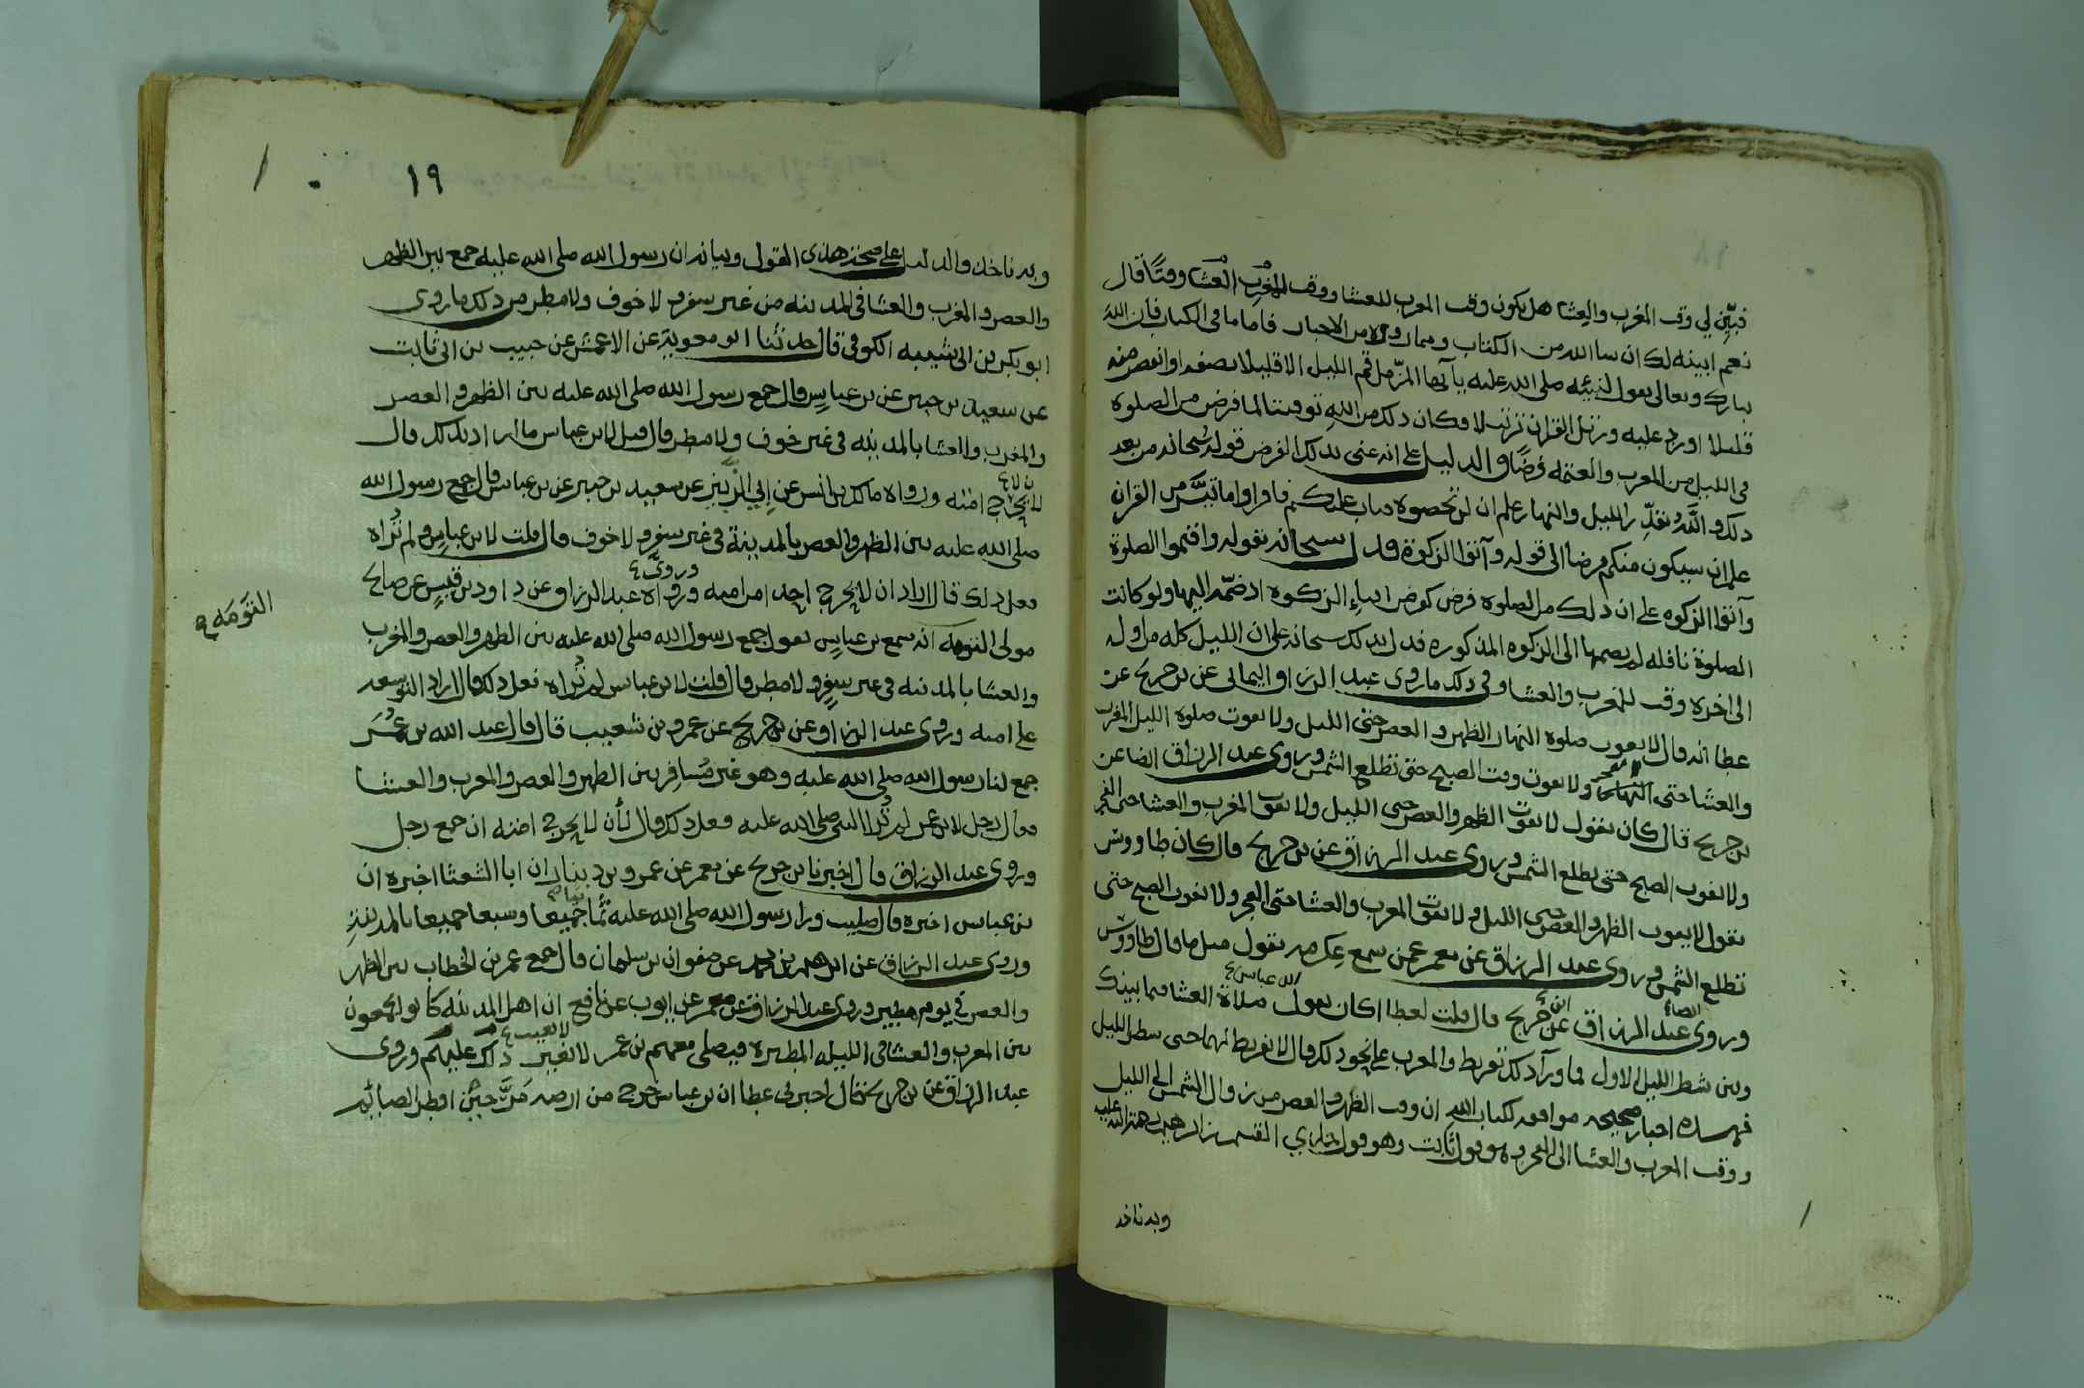 فبيِّن لي وقت المغرب والعشا هل يكون وقت المغرب للعشا ووقت المغرب العشا وقتًا قال
نعم ابينه لك ان شا الله من الكتاب ومما روي من الاخبار فاما ما في الكتاب فان الله
تبارك وتعالى يقول لنبيّه صلى الله عليه يآ ايها المزّمل قم الليل الا قليلا نصفه او انقص منه
قليلا او زد عليه ورتل القران ترتيلا فكان ذلك من الله توقيتا لما فرض من الصلوة
في الليل من المغرب والعتمه فرضًا والدليل على انه عنى بذلك الفرض قوله سُبحانه من بعد
ذلك والله يقدّر الليل والنهار علم ان لن تحصوه فتاب عليكم فاقراوا ما تيسَّر من القران
علم ان سيكون منكم مرضا الى قوله وآتوا الزكوة فدل سبحانه بقوله واقيموا الصلوة
وآتوا الزكوه على ان ذلك من الصلوه فرض كفرض ايتاء الزكوه اذ ضمّه اليها ولو كانت
الصلوة نافله لم يضمها الى الزكوه المذكوره فدل بذلك سبحانه على ان الليل كله من اوله
الى اخره وقت للمغرب والعشا وفي ذلك ما روى عبد الرزاق اليماني عن بن جريج عن
عطا انه قال لا تفوت صلوه النهار الظهر والعصر حتى الليل ولا تفوت صلوه الليل المغرب
والعشا حتى النهار ولا تفوت وقت الصبح حتى تطلع الشمس وروى عبد الرزاق ايضا عن
بن جريج قال كان يقول لا تفوت الظهر والعصر حتى الليل ولا تفوت المغرب والعشا حتى الفجر
ولا تفوت الصبح حتى تطلع الشمس وروى عبد الرزاق عن بن جريج قال كان طاووس
يقول لا تفوت الظهر والعصر حتى الليل ولا تفوت المغرب والعشا حتى الفجر ولا تفوت الصبح حتى
تطلع الشمس وروى عبد الرزاق عن معمر عمن سمع عكرمه يقول مثل ما قال طاووس
وروى عبد الرزاق ايضا عن ابن جريج قال قلت لعطا اكان يقول صلاة العشا فيما بينك
وبين شطر الليل الاول فما ورآ ذلك تفريط والمغرب على نحو ذلك قال لا تفريط لهما حتى شطر الليل
فهذه اخبار صحيحه موافقه لكتاب الله ان وقت الظهر والعصر من زوال الشمس الى الليل
ووقت المغرب والعشا الى الفجر وهو قول ثابت وهو قول جدي القسم بن ابرهيم رحمة الله عليه
وبه ناخذ
١٩
وبه ناخذ والدليل على صحة هذى القول وبيانه ان رسول الله صلى الله عليه جمع بين الظهر
والعصر والمغرب والعشا في المدينه من غير سفر ولا خوف ولا مطر من ذلك ما روى
ابو بكر بن ابي شيبه الكوفي قال حدثنا ابو معوية عن الاعمش عن حبيب بن ابي ثابت
عن سعيد بن جبير عن بن عباسٍ قال جمع رسول الله صلى الله عليه بين الظهر والعصر
والمغرب والعشا بالمدينه في غير خوف ولا مطر قال قيل لابن عباس ما اراد بذلك قال
ان لا يحرج امته ورواه مالك بن انس عن ابي الزبير عن سعيد بن جبير عن بن عباس قال جمع رسول الله
صلى الله عليه بين الظهر والعصر بالمدينة في غير سفر ولا خوف قال قلت لابن عباس ولم تُراه
فعل ذلك قال اراد ان لا يحرج احد امن امته وروى عبد الرزاق عن داود بن قيس عن صالح
مولى التومه انه سمع بن عباسٍ يقول جمع رسول الله صلى الله عليه بين الظهر والعصر والمغرب
التوَمَه
والعشا بالمدينه في غير سفرٍ ولا مطر قال قلت لابن عباس لم تُراه فعل ذلك قال اراد التوسعه
على امته وروى عبد الرزاق عن بن جريج عن عمرو بن شعيب قال قال عبد الله بن عُمَر
جمع لنا رسول الله صلى الله عليه وهو غير مُسافر بين الظهر والعصر والمغرب والعشا
فقال رجل لابن عمر لم تُرا النبي صلى الله عليه فعل ذلك قال لأن لا يحرج امته ان جمع رجل
وروى عبد الرزاق قال اخبرنا بن جريج عن معمر عن عمرو بن دينار ان ابا الشعثا اخبره ان
بن عباس اخبره قال صليت ورا رسول الله صلى الله عليه ثمانيا جميعا وسبعا جميعا بالمدينةِ
وروى عبد الرزاق عن ابرهيم بن محمد عن صفوان بن سليمان قال جمع عمر بن الخطاب بين الظهر
والعصر في يوم مطير وروى عبد الرزاق عن معمر عن ايوب عن نافع ان اهل المدينه كانوا يجمعون
بين المغرب والعشا في الليله المطيره فيصلي معهم بن عمر لا يعيب ذلك عليهم وروى
عبد الرزاق عن بن جريج قال اخبرني عطا ان بن عباس خرج من ارضه مَرَّ حين افطر الصائم